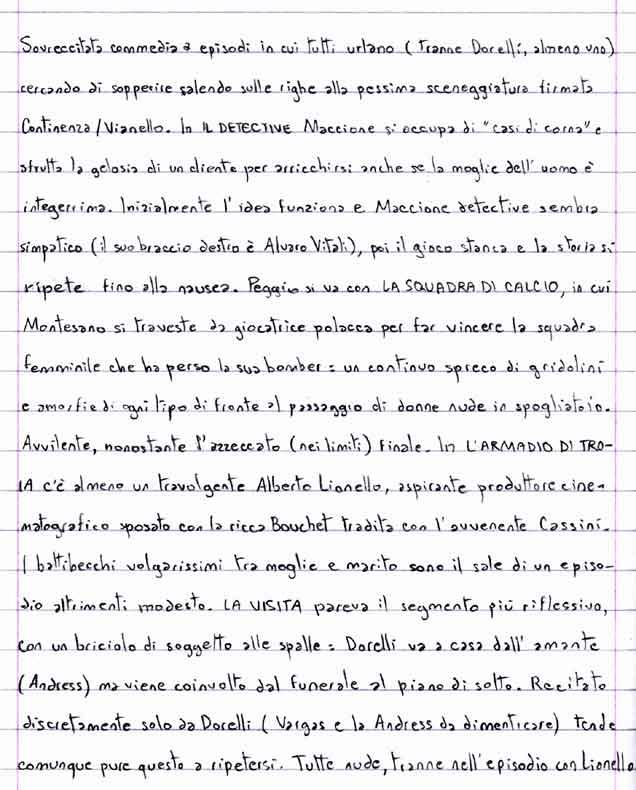 Sovreccitata commedia a episodi in cui tutti urlano (tranne Dorelli, almeno uno)
cercando di sopperire salendo sulle righe alla pessima sceneggiatura firmata
Continenza/Vianello. In IL DETECTIVE Maccione si occupa di "casi di corna" e
sfrutta la gelosia di un cliente per arricchirsi anche se la moglie dell'uomo è
integerrima. Inizialmente l'idea funziona e Maccione detective sembra
simpatico (il suo braccio destro è Alvaro Vitali), poi il gioco stanca e la storia si
ripete fino alla nausea. Peggio si va con LA SQUADRA DI CALCIO, in cui
Montesano si traveste da giocatrice polacca per far vincere la squadra
femminile che ha perso la sua bomber: un continuo spreco di gridolini
e smorfie di ogni tipo di fronte al passaggio di donne nude in spogliatoio.
Avvilente, nonostante l'azzeccato (nei limiti) finale. In L'ARMADIO DI TRO-
IA c'è almeno un travolgente Alberto Lionello, aspirante produttore cine-
matografico sposato con la ricca Bouchet tradita con l'avvenente Cassini.
I battibecchi volgarissimi tra moglie e marito sono il sale di un episo-
dio altrimenti modesto. LA VISITA pareva il segmento più riflessivo,
con un briciolo di soggetto alle spalle: Dorelli va a casa dall'amante
(Andress) ma viene coinvolto dal funerale al piano di sotto. Recitato
discretamente solo da Dorelli (Vargas e la Andress da dimenticare) tende
comunque pure questo a ripetersi. Tutte nude, tranne nell'episodio con Lionello.